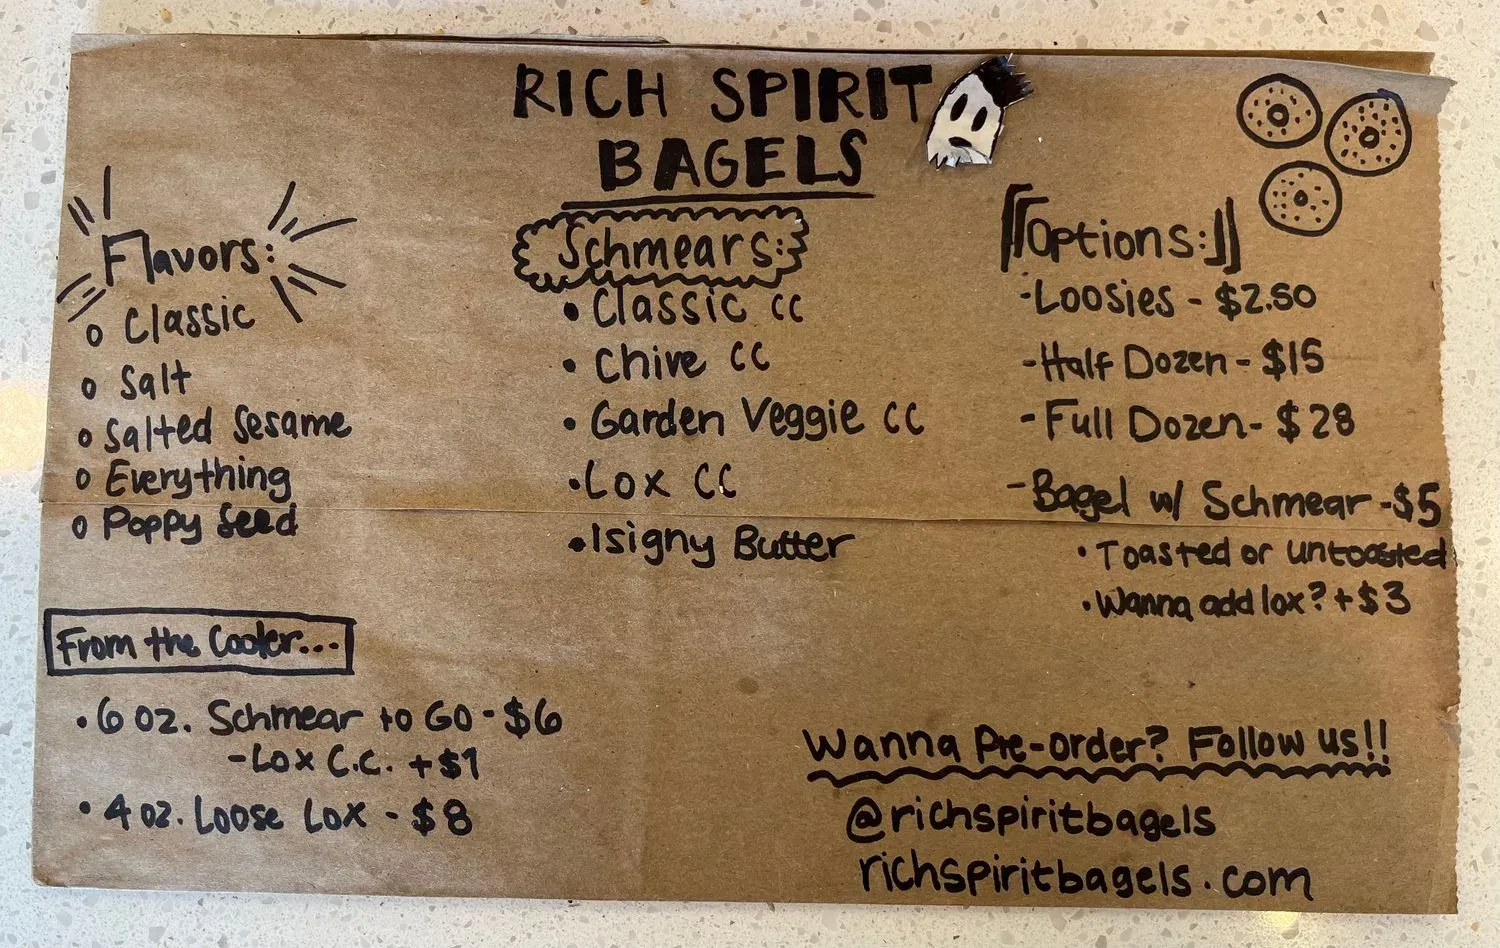 RICH SPIRIT
BAGELS
Flavors:
o Classic
o Salt
o Salted Sesame
o Everything
o Poppy Seed
Schmears:
• Classic cc
• Chive CC
• Garden Veggie CC
• Lox CC
• Isigny Butter
Options:
- Loosies - $2.50
- Half Dozen - $15
- Full Dozen - $28
- Bagel w/ Schmear - $5
• Toasted or untoasted
• Wanna add lox? + $3
From the Cooler...
• 6 oz. Schmear to GO - $6
- Lox C.C. + $1
• 4 oz. Loose Lox - $8
Wanna Pre-order? Follow us!!
@richspiritbagels
richspiritbagels.com